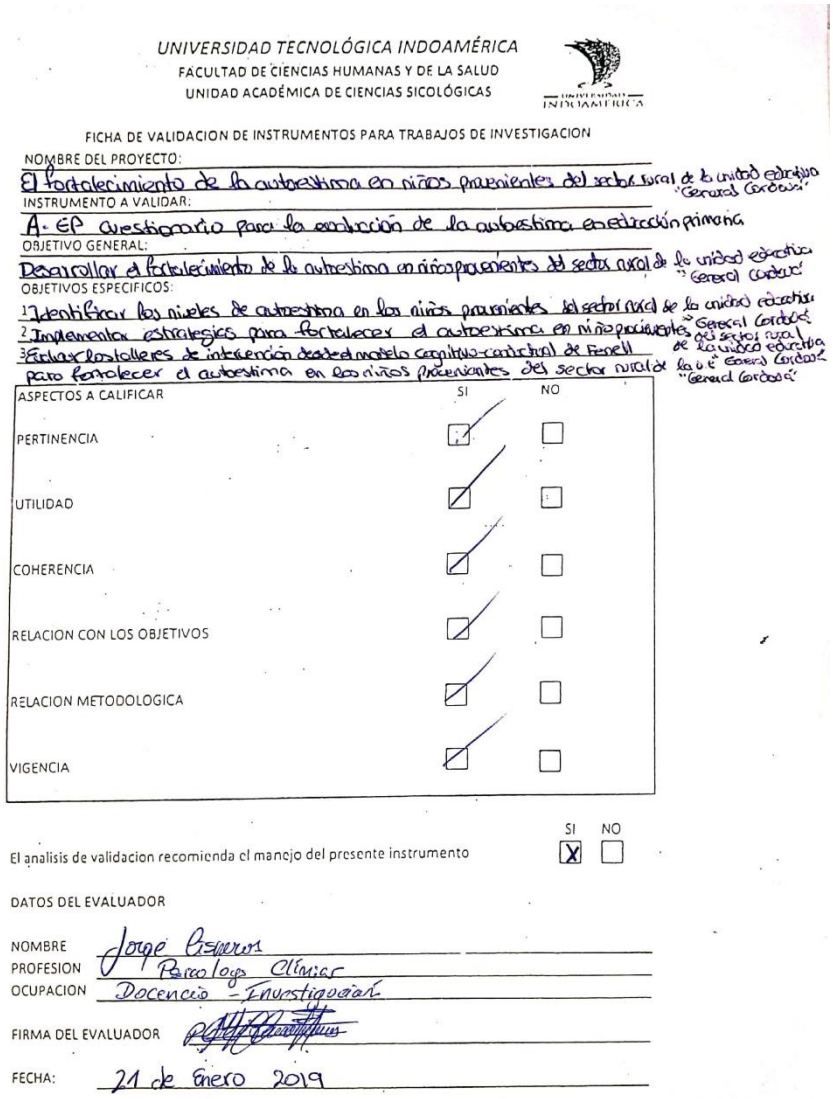 UNIVERSIDAD TECNOLÓGICA INDOAMÉRICA
FACULTAD DE CIENCIAS HUMANAS Y DE LA SALUD
UNIDAD ACADÉMICA DE CIENCIAS SICOLÓGICAS
UNIVERSIDAD
INDOAMERICA
FICHA DE VALIDACION DE INSTRUMENTOS PARA TRABAJOS DE INVESTIGACION
NOMBRE DEL PROYECTO:
El fortalecimiento de la autoestima en niños provenientes del sector rural de la unidad educativa
"General Cordova"
INSTRUMENTO A VALIDAR:
A-EP cuestionario para la evaluación de la autoestima en educación primaria
OBJETIVO GENERAL:
Desarrollar el fortalecimiento de la autoestima en niños provenientes del sector rural de la unidad educativa
"General Cordova"
OBJETIVOS ESPECIFICOS:
1 Identificar los niveles de autoestima en los niños provenientes del sector rural de la unidad educativa
"General Cordova"
2 Implementar estrategias para fortalecer el autoestima en niño provenientes del sector rural
de la unidad educativa
"General Cordova"
3 los talleres de intervención desde el modelo cognitivo-conductual de Fenell
para fortalecer el autoestima en los niños provenientes del sector rural de la U.E
"General Cordova"
ASPECTOS A CALIFICAR SI NO
PERTINENCIA
UTILIDAD
COHERENCIA
RELACION CON LOS OBJETIVOS
RELACION METODOLOGICA
VIGENCIA
SI NO
El analisis de validacion recomienda el manejo del presente instrumento X
DATOS DEL EVALUADOR
NOMBRE Jorge Cisneros
PROFESION Psicologo Clínico
OCUPACION Docencia - Investigación
FIRMA DEL EVALUADOR
FECHA: 21 de Enero 2019